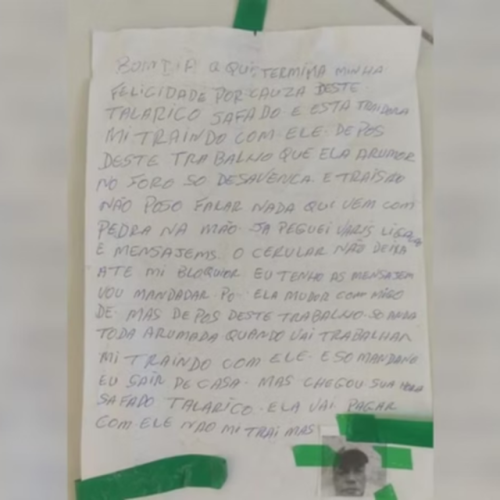 BOM DIA A QUI TERMIMA MINHA
FELICIDADE POR CAUZA DESTE
TALARICO SAFADO E ESTA TRAIDORA
MI TRAINDO COM ELE. DE POS
DESTE TRABALHO QUE ELA ARUMOR
NO FORO SO DESAVENCA. E TRAISAO
NÃO POSO FALAR NADA QUI VEM COM
PEDRA NA MÃO. JA PEGUEI VARIS
E MENSAJEMS. O CERULAR NÃO DEIXA
ATE MI BLOQUIOR. EU TENHO AS MENSAJEM
VOU MANDADAR. PO. ELA MUDOR COM MIGO
DE MAS DE POS DESTE TRABALHO. SO ANDA
TODA ARUMADA QUANDO VAI TRABALHAR
MI TRAINDO COM ELE. E SO MANDANO
EU SAIR DE CASA. MAS CHEGOU SUA HORA
SAFADO TALARICO. ELA VAI PAGAR
COM ELE NÃO MI TRAI MAS